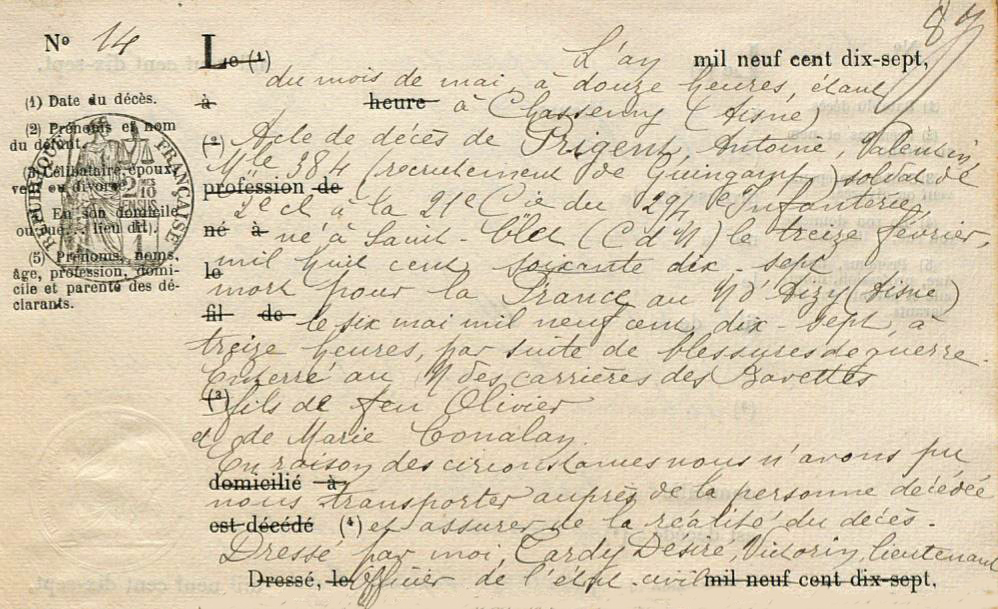 87
N° 14
Le (1) L'an mil neuf cent dix-sept,
du mois de mai, à douze heures, étant
à heure à Chassemy (Aisne)
(2) Acte de décès de Prigent, Antoine, Valentin,
Mle 384 (recrutement de Guingamp) soldat de
profession de
2e cl à la 21e Cie du Infanterie,
né à né à Saint- (C d N) le treize février,
mil huit cent soixante dix-sept
le
mort pour la France au N d'Aizy (Aisne)
fil de le six mai mil neuf cent dix-sept, à
treize heures, par suite de blessures de guerre.
Enterré au N des carrières des Bavettes
(3) fils de feu Olivier
et de Marie Conalan.
En raison des circonstances nous n'avons pu
domicilié à
nous transporter auprès de la personne décédée
est décédé (4) et assurer de la réalité du décès.
Dressé par moi, Cardy Désiré, Victorin, lieutenant
Dressé, le Officier de l'état-civil mil neuf cent dix-sept,
(1) Date du décès.
(2) Prénoms et nom
du défunt.
(3) Célibataire, époux,
veuf ou divorcé.
En son domicile
ou rue... lieu dit).
(5) Prénoms, noms,
âge, profession, domi-
cile et parenté des dé-
clarants.
RÉPUBLIQUE FRANÇAISE